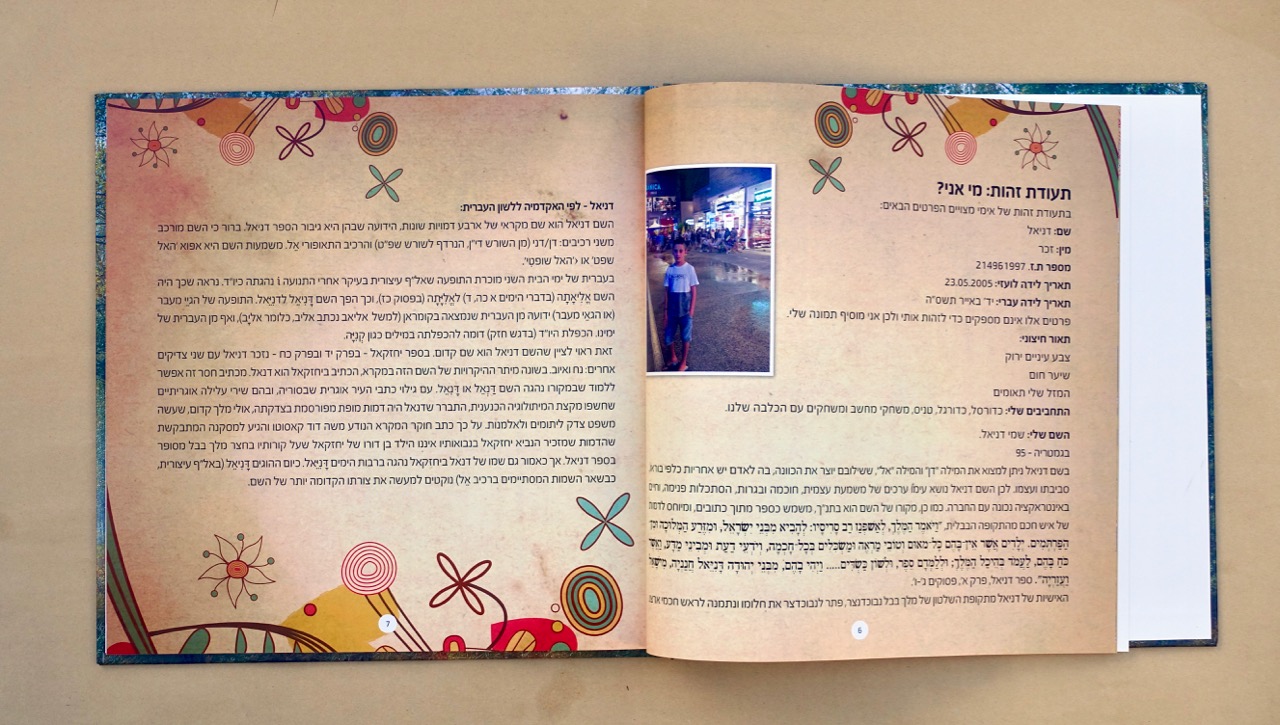 תעודת זהות: מי אני?
בתעודת זהות של אימי מצויים הפרטים הבאים:
שם: דניאל
מין: זכר
מספר ת.ז. 214961997
תאריך לידה לועזי: 23.05.2005
תאריך לידה עברי: יד' באייר תשס"ה
פרטים אלו אינם מספקים כדי לזהות אותי ולכן אני מוסיף תמונה שלי.
תאור חיצוני:
צבע עיניים ירוק
שיער חום
המזל שלי תאומים
התחביבים שלי: כדורסל, כדורגל, טניס, משחקי מחשב ומשחקים עם הכלבה שלנו.
השם שלי: שמי דניאל.
בגמטריה - 95
בשם דניאל ניתן למצוא את המילה "דן" והמילה "אל", ששילובם יוצר את הכוונה, בה לאדם יש אחריות כלפי בוראו,
סביבתו ועצמו. לכן השם דניאל נושא עימו ערכים של משמעת עצמית, חוכמה ובגרות, הסתכלות פנימה, וחיים
באינטראקציה נכונה עם החברה. כמו כן, מקורו של השם הוא בתנ"ך, משמש כספר מתוך כתובים, ומיוחס לדמותו
של איש חכם מהתקופה הבבלית, "וַיֹּאמֶר הַמֶּלֶךְ, לְאַשְׁפְּנַז רַב סָרִיסָיו: לְהָבִיא מִבְּנֵי יִשְׂרָאֵל, וּמִזֶּרַע הַמְּלוּכָה וּמִן
הַפַּרְתְּמִים. יְלָדִים אֲשֶׁר אֵין-בָּהֶם כָּל-מאוּם וְטוֹבֵי מַרְאֶה וּמַשְׂכִּלִים בְּכָל-חָכְמָה, וְיֹדְעֵי דַעַת וּמְבִינֵי מַדָּע, וַאֲשֶׁר
כֹּחַ בָּהֶם, לַעֲמֹד בְּהֵיכַל הַמֶּלֶךְ, וּלְלַמְּדָם סֵפֶר, וּלְשׁוֹן כַּשְׂדִּים..... וַיְהִי בָהֶם, מִבְּנֵי יְהוּדָה דָּנִיֵּאל חֲנַנְיָה, מִישָׁאֵל
וַעֲזַרְיָה". ספר דניאל, פרק א', פסוקים ג'-ו'.
האישיות של דניאל מתקופת השלטון של מלך בבל נבוכדנצר, פתר לנבוכדצר את חלומו ונתמנה לראש חכמי ארצו
6
דניאל - לפי האקדמיה ללשון העברית:
השם דניאל הוא שם מקראי של ארבע דמויות שונות, הידועה שבהן היא גיבור הספר דניאל. ברור כי השם מורכב
משני רכיבים: דן/דני (מן השורש די"ן, הנרדף לשורש שפ"ט) והרכיב התאופורי אֵל. משמעות השם היא אפוא 'האל
שפט' או 'האל שופטי'.
בעברית של ימי הבית השני מוכרת התופעה שאל"ף עיצורית בעיקר אחרי התנועה i נהגתה כיו"ד. נראה שכך היה
השם אֱלִיאָתָה (בדברי הימים א כה, ד) לאֱלִיָּתָה (בפסוק כז), וכך הפך השם דָּנִיאֵל לדָנִיֵּאל. התופעה של הגיי מעבר
(או הגאי מעבר) ידועה מן העברית שנמצאה בקומראן (למשל אליאב נכתב אליב, כלומר אליָב), ואף מן העברית של
ימינו. הכפלת היו"ד (בדגש חזק) דומה להכפלתה במילים כגון קְנִיָּה.
זאת ראוי לציין שהשם דניאל הוא שם קדום. בספר יחזקאל - בפרק יד ובפרק כח - נזכר דניאל עם שני צדיקים
אחרים: נח ואיוב. בשונה מיתר ההיקרויות של השם הזה במקרא, הכתיב ביחזקאל הוא דנאל. מכתיב חסר זה אפשר
ללמוד שבמקורו נהגה השם דָּנְאֵל או דָּנִאֵל. עם גילוי כתבי העיר אוגרית שבסוריה, ובהם שירי עלילה אוגריתיים
שחשפו מקצת המיתולוגיה הכנענית, התברר שדנאל היה דמות מופת מפורסמת בצדקתה, אולי מלך קדום, שעשה
משפט צדק ליתומים ולאלמנות. על כך כתב חוקר המקרא הנודע משה דוד קאסוטו והגיע למסקנה המתבקשת
שהדמות שמזכיר הנביא יחזקאל בנבואותיו איננו הילד בן דורו של יחזקאל שעל קורותיו בחצר מלך בבל מסופר
בספר דניאל. אך כאמור גם שמו של דנאל ביחזקאל נהגה ברבות הימים דָּנִיֵּאל. כיום ההוגים דָּנִיאֵל (באל"ף עיצורית,
כבשאר השמות המסתיימים ברכיב אֵל) נוקטים למעשה את צורתו הקדומה יותר של השם.
7